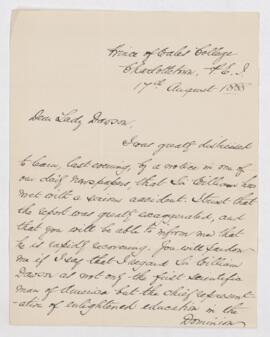 Prince of Wales College
Charlottetown, P.E.I.
17th August 1885
Dear Lady Dawson,
I was greatly distressed
to learn, last evening, by a notice in one of
our daily newspapers, that Sir William has
met with a serious accident. I trust that
the report was greatly exaggerated, and
that you will be able to inform me that
he is rapidly recovering. You will pardon
me if I say that I regard Sir William
Dawson as not only the first scientific
man of America but the chief represent-
-ative of enlightened education in the
Dominion